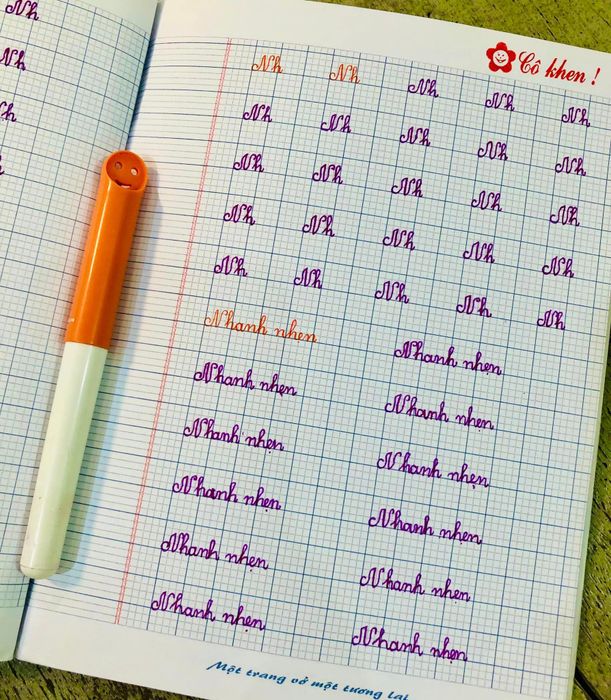 Nh
Nh
Cô khen !
Nh Nh Nh Nh Nh
Nh Nh Nh Nh Nh
Nh Nh Nh Nh Nh
Nh Nh Nh Nh Nh
Nh Nh Nh Nh Nh
Nhanh nhẹn Nhanh nhẹn
Nhanh nhẹn Nhanh nhẹn
Nhanh nhẹn Nhanh nhẹn
Nhanh nhẹn Nhanh nhẹn
Nhanh nhẹn Nhanh nhẹn
Nhanh nhẹn Nhanh nhẹn
Một trang vở một tương lai